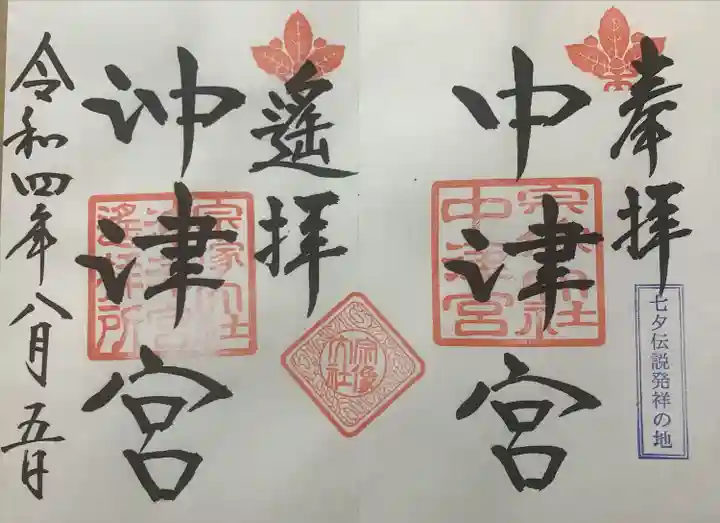 奉拝
中津宮
宗像大社
中津宮
七夕伝説発祥の地
遥拝
沖津宮
宗像大社
沖津宮
遥拝所
宗像
大社
令和四年八月五日